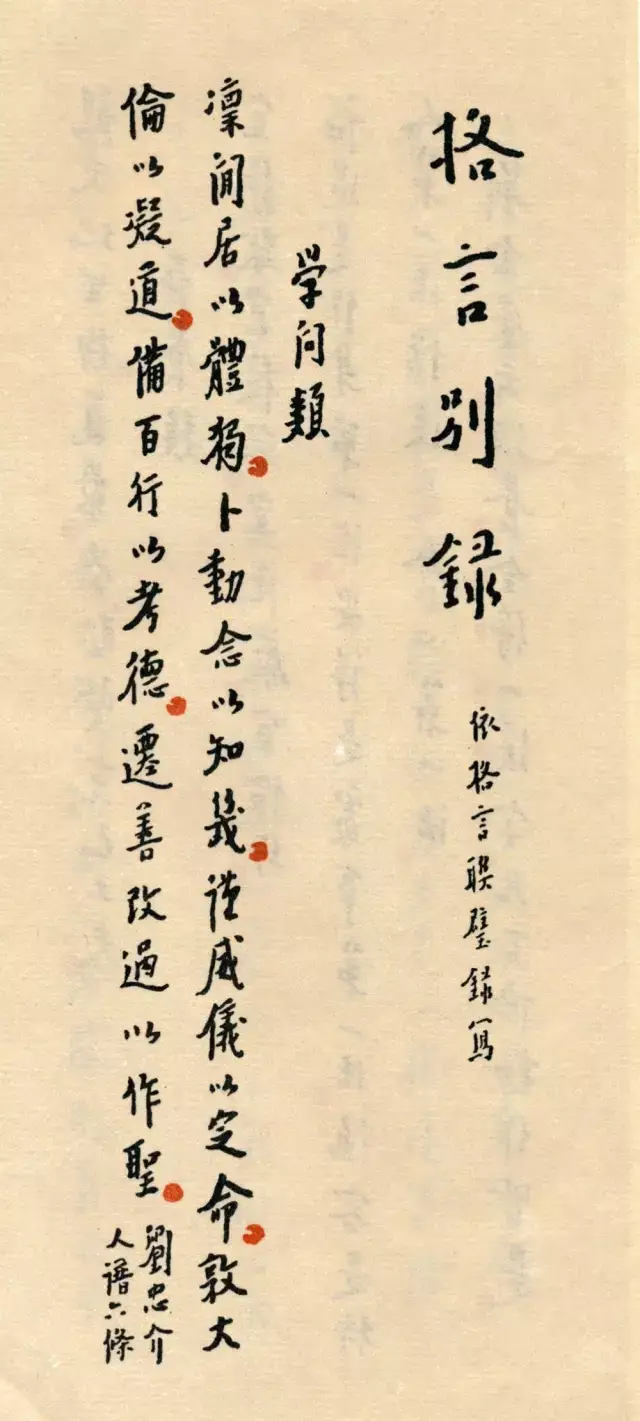 格言別録
依格言聯璧録寫
学问類
凜閒居以體獨卜動念以知幾謹威儀以定命敦大
倫以凝道備百行以考德遷善改過以作聖
劉忠介
人譜六條